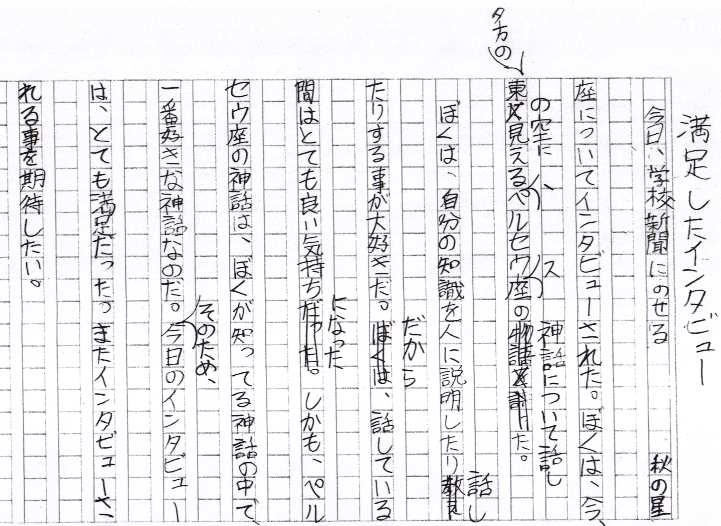 満足したインタビュー
今日、学校新聞にのせる 秋の星
座についてインタビューされた。ぼくは、今、
夕方の
の空に ス 神話について話し
東に見えるペルセウ座の物語を した。
話し
ぼくは、自分の知識を人に説明したり教え
だから
たりする事が大好きだ。ぼくは、話している
になった
間はとても良い気持ちだった。しかも、ペル
セウ座の神話は、ぼくが知ってる神話の中で、
そのため、
一番好きな神話なのだ。今日のインタビュー
は、とても満足だった。またインタビューさ
れる事を期待したい。